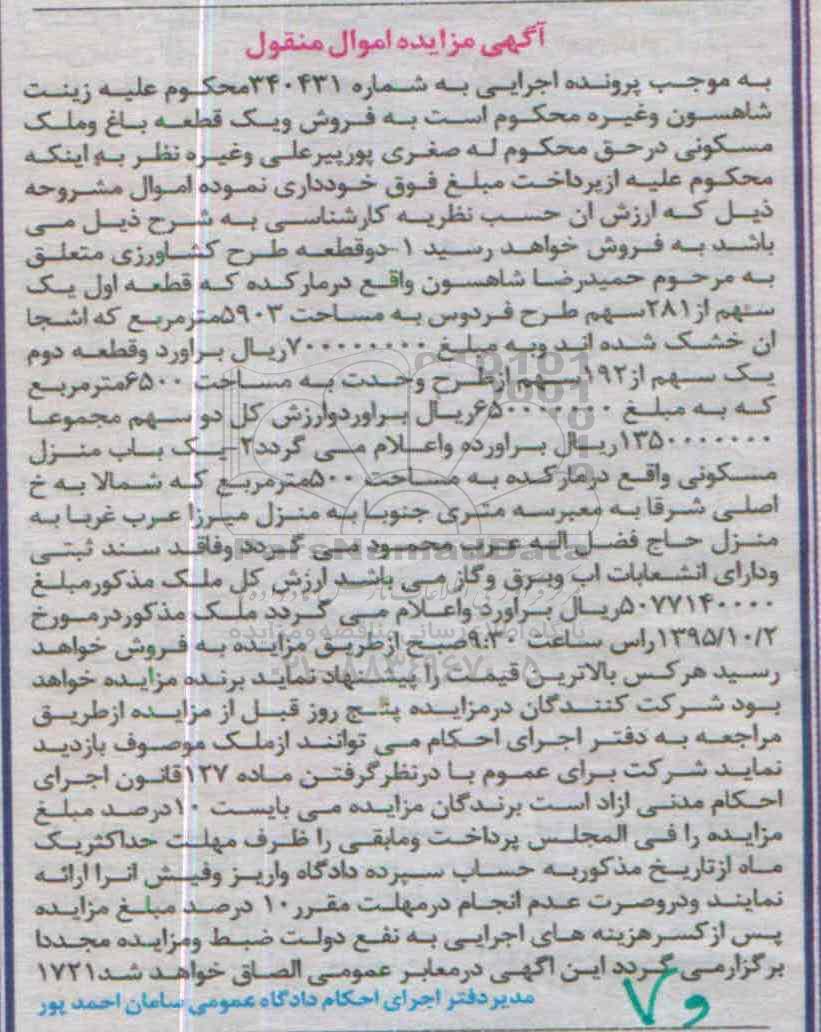 آگهی مزایده اموال منقول
به موجب پرونده اجرایی به شماره ۳۴۰۴۳۱محکوم علیه زینت
شاهسون وغیره محکوم است به فروش ویک قطعه باغ وملک
مسکونی درحق محکوم له صغری پورپیرعلی وغیره نظر به اینکه
محکوم علیه ازپرداخت مبلغ فوق خودداری نموده اموال مشروحه
ذیل که ارزش ان حسب نظریه کارشناسی به شرح ذیل می
باشد به فروش خواهد رسید ۱-دوقطعه طرح کشاورزی متعلق
به مرحوم حمیدرضا شاهسون واقع درمارکده که قطعه اول یک
سهم از۲۸۱سهم طرح فردوس به مساحت ۵۹۰۳مترمربع که اشجا
ان خشک شده اند وبه مبلغ ۷۰۰۰۰۰۰۰۰ریال براورد وقطعه دوم
یک سهم از۱۹۲سهم ازطرح وحدت به مساحت ۶۵۰۰مترمربع
که به مبلغ ۶۵۰۰۰۰۰۰۰ریال براوردوارزش کل دو سهم مجموعا
۱۳۵۰۰۰۰۰۰۰ریال براورده واعلام می گردد۲-یک باب منزل
مسکونی واقع درمارکده به مساحت ۵۰۰مترمربع که شمالا به خ
اصلی شرقا به معبرسه متری جنوبا به منزل میرزا عرب غربا به
منزل حاج فضل اله عرب محمود می گردد وفاقد سند ثبتی
ودارای انشعابات اب وبرق وگاز می باشد ارزش کل ملک مذکورمبلغ
۵۰۷۷۱۴۰۰۰۰ریال براورد واعلام می گردد ملک مذکوردرمورخ
۱۳۹۵/۱۰/۲راس ساعت ۹:۳۰صبح ازطریق مزایده به فروش خواهد
رسید هرکس بالاترین قیمت را پیشنهاد نماید برنده مزایده خواهد
بود شرکت کنندگان درمزایده پنج روز قبل از مزایده ازطریق
مراجعه به دفتر اجرای احکام می توانند ازملک موصوف بازدید
نماید شرکت برای عموم با درنظرگرفتن ماده ۱۲۷قانون اجرای
احکام مدنی ازاد است برندگان مزایده می بایست ۱۰درصد مبلغ
مزایده را فی المجلس پرداخت ومابقی را ظرف مهلت حداکثریک
ماه ازتاریخ مذکوربه حساب سپرده دادگاه واریز وفیش انرا ارائه
نمایند ودروصرت عدم انجام درمهلت مقرر۱۰ درصد مبلغ مزایده
پس ازکسرهزینه های اجرایی به نفع دولت ضبط ومزایده مجددا
برگزارمی گردد این اگهی درمعابر عمومی الصاق خواهد شد۱۷۲۱
مدیردفتر اجرای احکام دادگاه عمومی سامان احمد پور